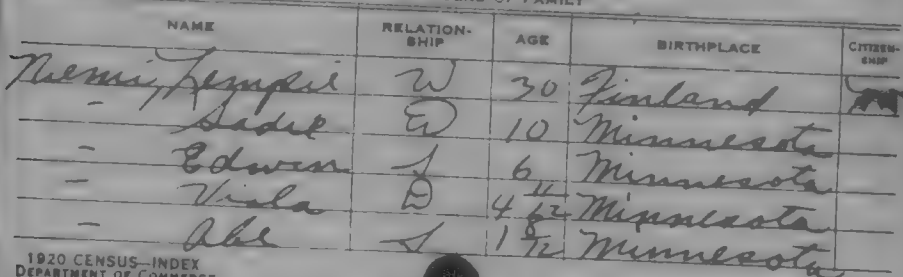 OF FAMILY
NAME RELATION-SHIP AGE BIRTHPLACE CITIZEN-SHIP
Niemi, Lempie W 30 Finland
" Sadie D 10 Minnesota
" Edwin S 6 Minnesota
" Viola D 4 11/12 Minnesota
" Abe S 1 8/12 Minnesota
1920 CENSUS—INDEX
DEPARTMENT OF COMMERCE